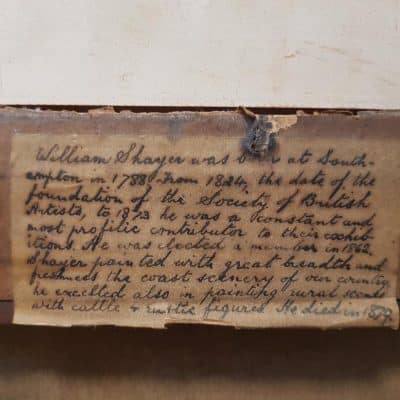 William Shayer was b r at South-
ampton in 1788 From 1824, the date of the
foundation of the Society of British
Artists, to 1873 he was a constant and
most prolific contributor to their exhib-
itions. He was elected a member in 1862.
Shayer painted with great breadth and
freshness the coast scenery of our country
he excelled also in painting rural scenes
with cattle & rustic figures He died in 1879.